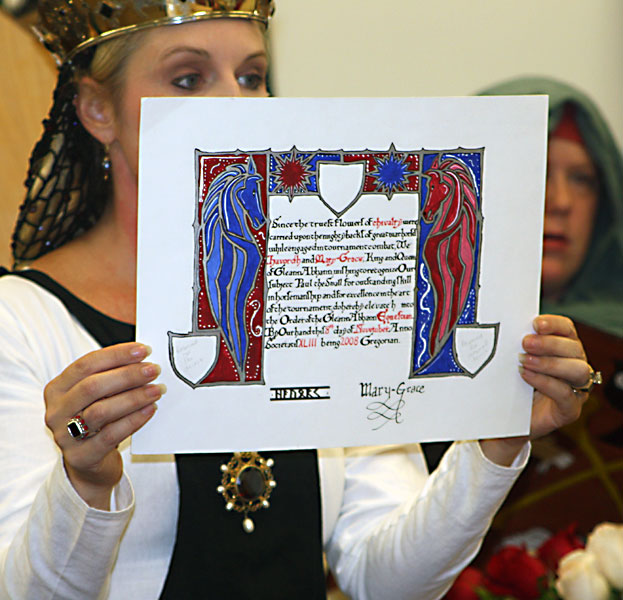 Since the truest flowers of chivalry were
carried upon the mighty backs of great warhorses
while engaged in tournament combat, We
and Mary-Grace, King and Queen
of Gleann Abhann wishing to recognize Our
subject Paul the Small for outstanding skill
in horsemanship and for excellence in the art
of the tournament, do hereby elevate him to
the Order of the Gleann Abhann
By Our hand this 8th day of November, Anno
Societatis XLIII being 2008 Gregorian.
Mary-Grace